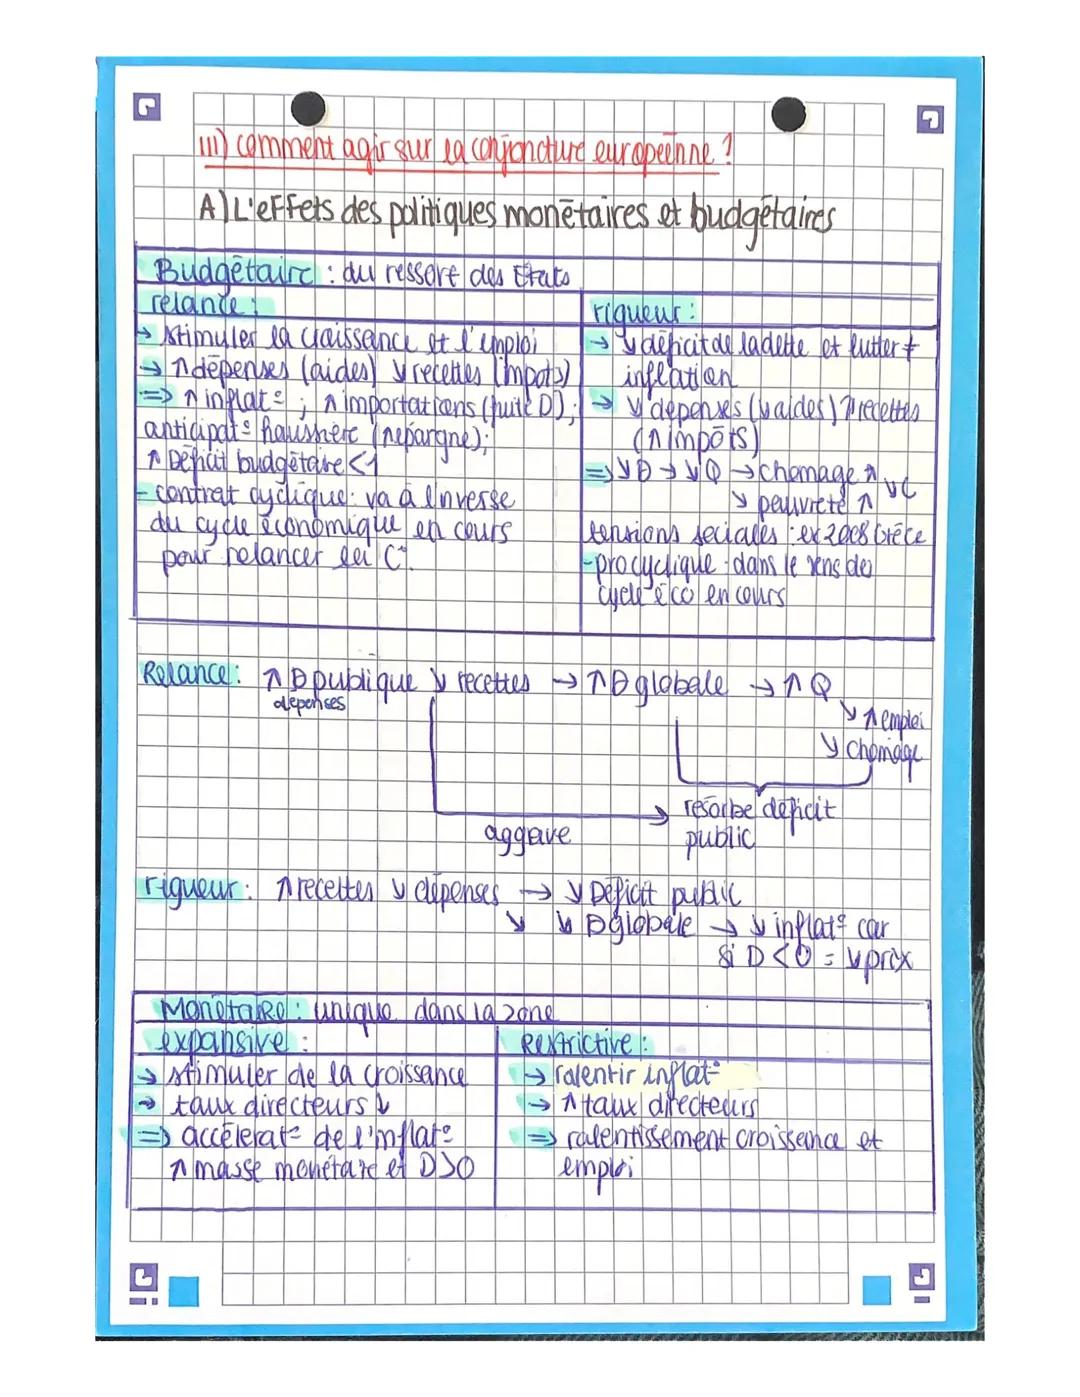 III) comment agir sur la conjoncture européenne ?
A) L'effets des politiques monétaires et budgétaires
Budgétaire : du ressort des Etats
relance :
→ stimuler la croissance et l'emploi
→ ↑ dépenses (aides) ↘ recettes (impots)
=> ↑ inflat° ; ↑ importations (fuite D) ;
anticipat° haussière (↑épargne);
↑ Déficit budgétaire <1
- contrat cyclique : va à l'inverse
du cycle économique en cours
pour relancer la C°.
rigueur :
→ ↘ déficit de la dette et lutter ≠
inflation
→ ↘ dépenses (↘ aides) ↗ recettes
(↑ impôts)
=> ↘ D → ↘ Q → chomage ↑
↘ pauvreté ↑ ↘C
tensions sociales : ex 2008 Grèce
- procyclique : dans le sens du
cycle éco en cours
Relance : ↑ D publique ↘ recettes → ↑ D globale → ↑ Q
dépenses
↘ ↑ emploi
↘ chomage
résorbe déficit
public
aggrave
rigueur : ↑ recettes ↘ dépenses → ↘ Déficit public
↘ ↘ D globale → ↘ inflat° car
si D < O = ↘ prix
Monétaire : unique dans la zone
expansive :
→ stimuler de la croissance
→ taux directeurs ↓
=> accélérat° de l'inflat°
↑ masse monétaire et D>O
Restrictive :
→ ralentir inflat°
→ ↑ taux directeurs
=> ralentissement croissance et
emploi